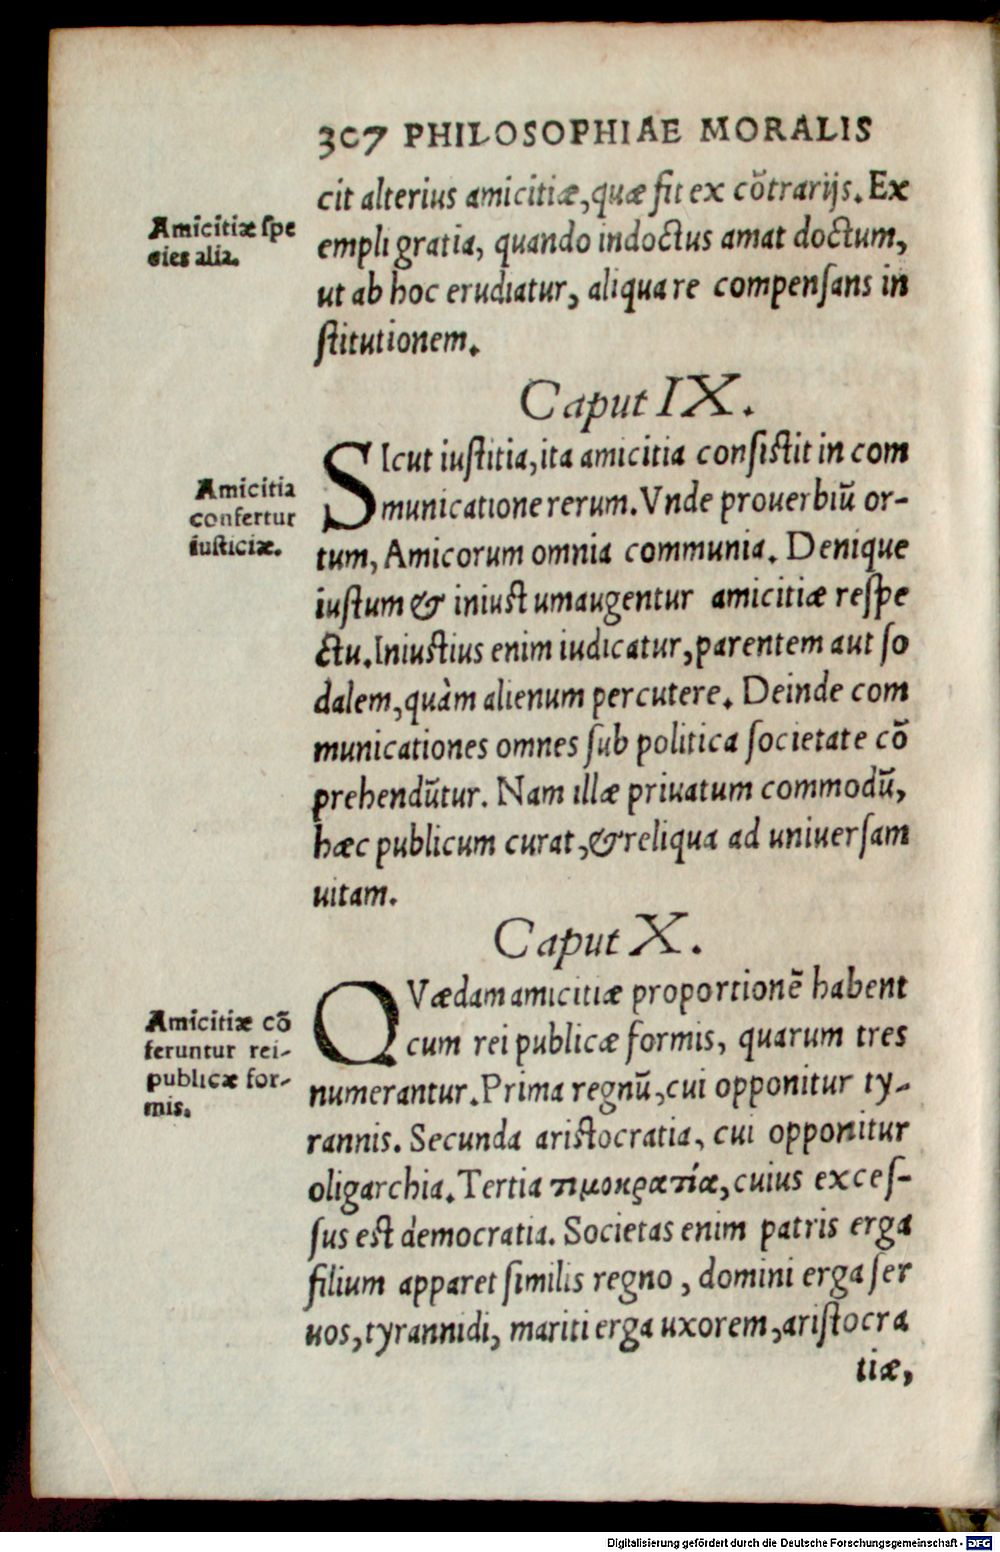 307 PHILOSOPHIAE MORALIS
cit alterius amicitiæ, quæ fit ex cõtrarijs. Ex
empli gratia, quando indoctus amat doctum,
ut ab hoc erudiatur, aliqua re compensans in
stitutionem.
Amicitiæ spe
cies alia.
Caput IX.
SIcut iustitia, ita amicitia consistit in com
municatione rerum. Vnde prouerbiũ or-
tum, Amicorum omnia communia. Denique
iustum & iniustum augentur amicitiæ respe
ctu. Iniustius enim iudicatur, parentem aut so
dalem, quàm alienum percutere. Deinde com
municationes omnes sub politica societate cõ
prehendũtur. Nam illæ priuatum commodũ,
hæc publicum curat, & reliqua ad uniuersam
uitam.
Amicitia
confertur
iusticiæ.
Caput X.
QVædam amicitiæ proportionẽ habent
cum rei publicæ formis, quarum tres
numerantur. Prima regnũ, cui opponitur ty-
rannis. Secunda aristocratia, cui opponitur
oligarchia. Tertia τιμοκρατία, cuius exces-
sus est democratia. Societas enim patris erga
filium apparet similis regno, domini erga ser
uos, tyrannidi, mariti erga uxorem, aristocra
tiæ,
Amicitiæ cõ
feruntur rei-
publicæ for-
mis.
Digitalisierung gefördert durch die Deutsche Forschungsgemeinschaft - DFG